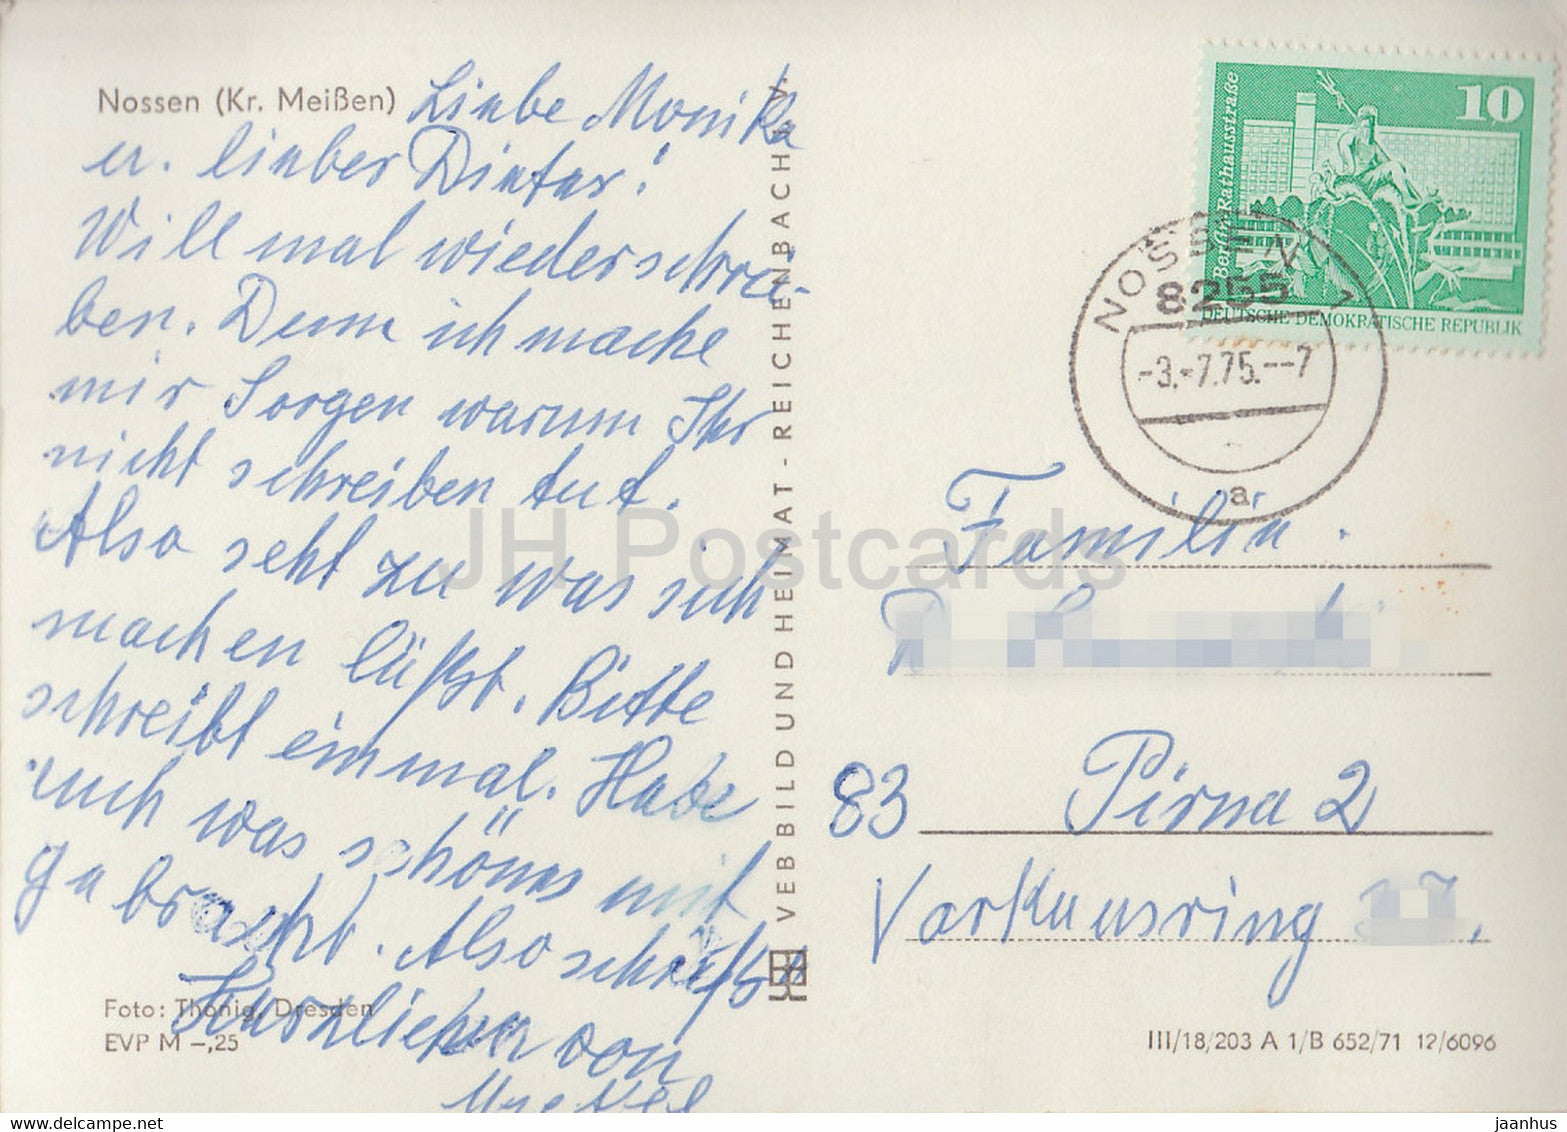 Nossen (Kr. Meißen) Liebe Monika
u. lieber Dieter!
Will mal wieder schrei-
ben. Denn ich mache
mir Sorgen warum Ihr
nicht schreiben tut.
Also seht zu was sich
machen läßt. Bitte
schreibt einmal. Habe
euch was schönes mit
gebracht. Also schreibt
Herzlichen von
Foto: Thonig, Dresden
EVP M –,25
VEB BILD UND HEIMAT - REICHENBACH I. V.
10
Berlin, Rathausstraße
DEUTSCHE DEMOKRATISCHE REPUBLIK
NOSSEN 1
8255
-3.-7.75.--7
a
Familie
83 Pirna 2
Varkausring
III/18/203 A 1/B 652/71 12/6096
JH Postcards
www.delcampe.net
jaanhus